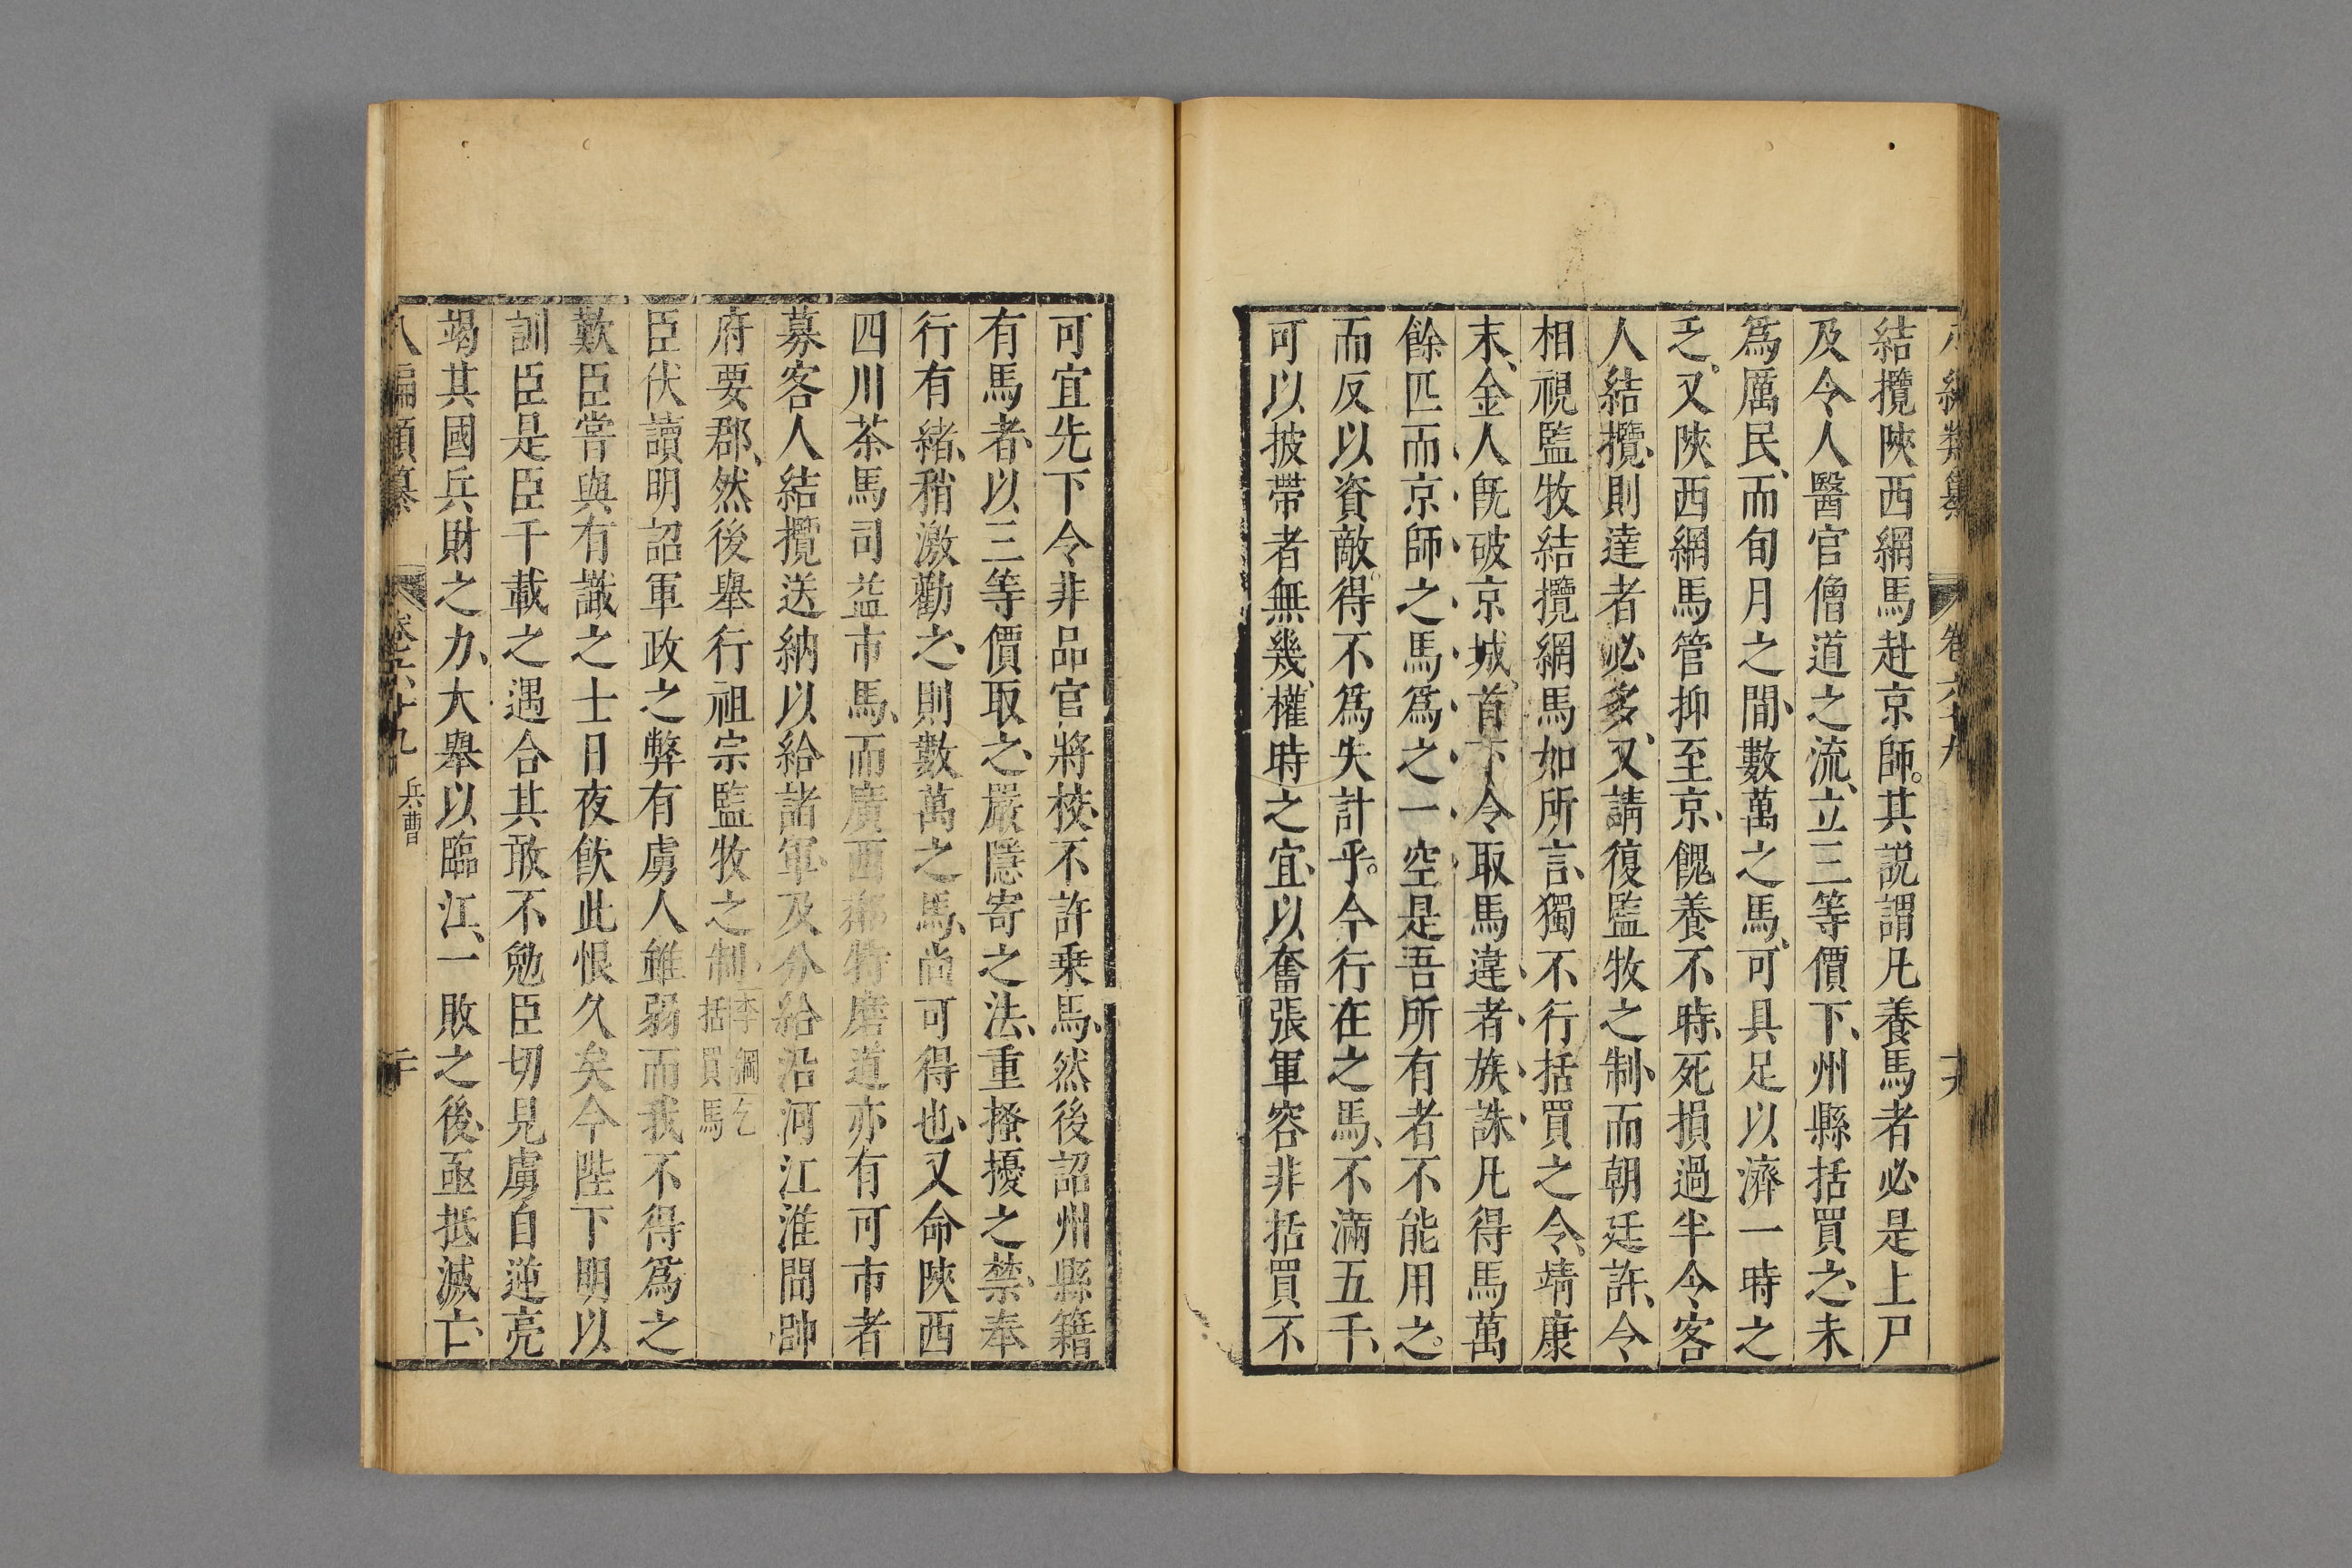 編類纂 卷六十九 十九
結攬陝西網馬赴京師。其説謂凡養馬者必是上尸
及令人醫官僧道之流、立三等價下、州縣括買之、未
爲厲民、而旬月之間、數萬之馬、可具足以濟一時之
乏。又陝西網馬管抑至京、餽養不時、死損過半令客
人結攬、則達者必多、又請復監牧之制、而朝廷許、令
相視監牧結攬網馬如所言、獨不行括買之令、靖康
末、金人旣破京城、首下令取馬違者、族誅、凡得馬萬
餘匹而京師之馬爲之一空是吾所有者不能用之。
而反以資敵。得不爲失計乎。今行在之馬、不滿五千、
可以披帶者無幾、權時之宜、以奮張軍容非括買不
可宜先下令非品官將校、不許乗馬、然後詔州縣籍
有馬者、以三等價取之、嚴隱寄之法、重搔擾之禁、奉
行有緒、稍激勸之、則數萬之馬、尚可得也、又命陝西
四川茶馬司益市馬、而廣西鄰特磨道亦有可市者
募客人結攬送納以給諸軍。及分給沿河江淮間帥
府要郡、然後舉行祖宗監牧之制、李綱乞括買馬
臣伏讀明詔軍政之弊有虜人雖弱而我不得爲之
歎臣嘗與有識之士日夜飲此恨久矣今陛下明以
訓臣是臣千載之遇合其敢不勉臣切見虜自逆亮
竭其國兵財之力、大舉以臨江、一敗之後、亟抵滅亡、
八編類纂 卷六十九 兵曹 二十